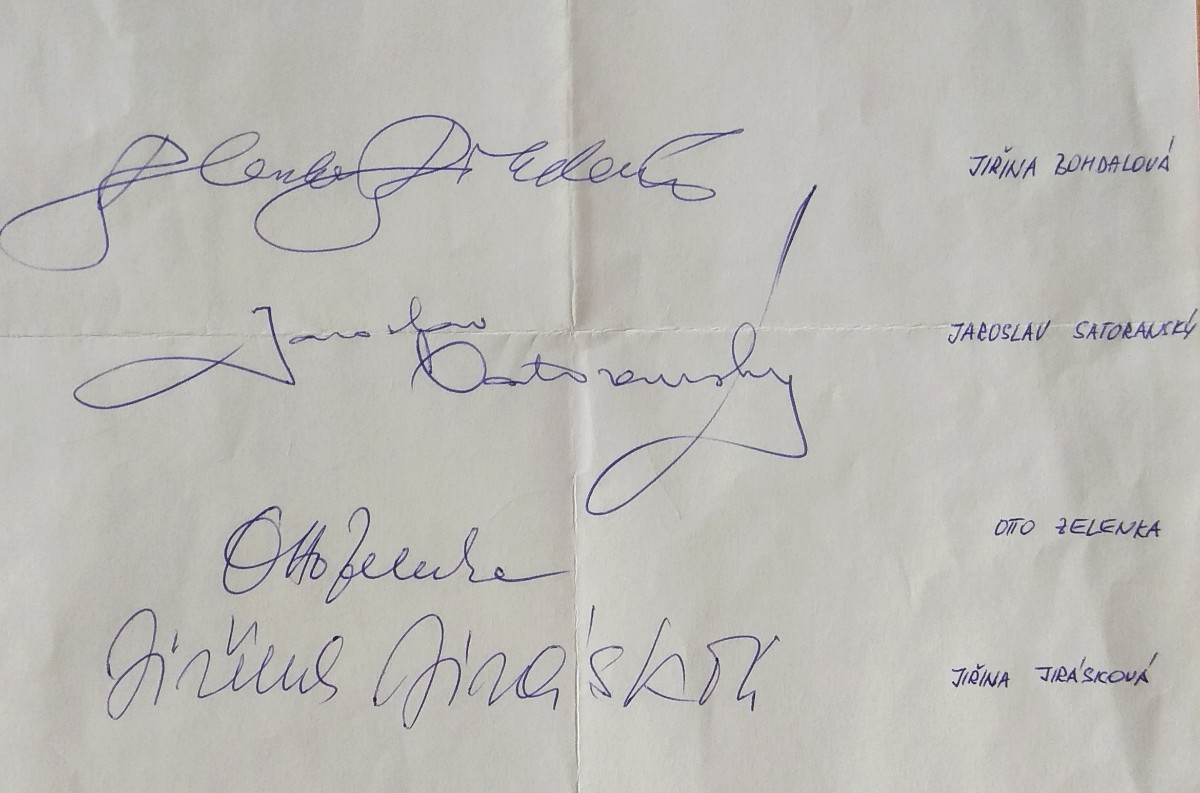 JIŘINA BOHDALOVÁ
Jaroslav JAROSLAV SATORANSKÝ
Satoranský
Otto Zelenka OTTO ZELENKA
Jiřina Jirásková JIŘINA JIRÁSKOVÁ